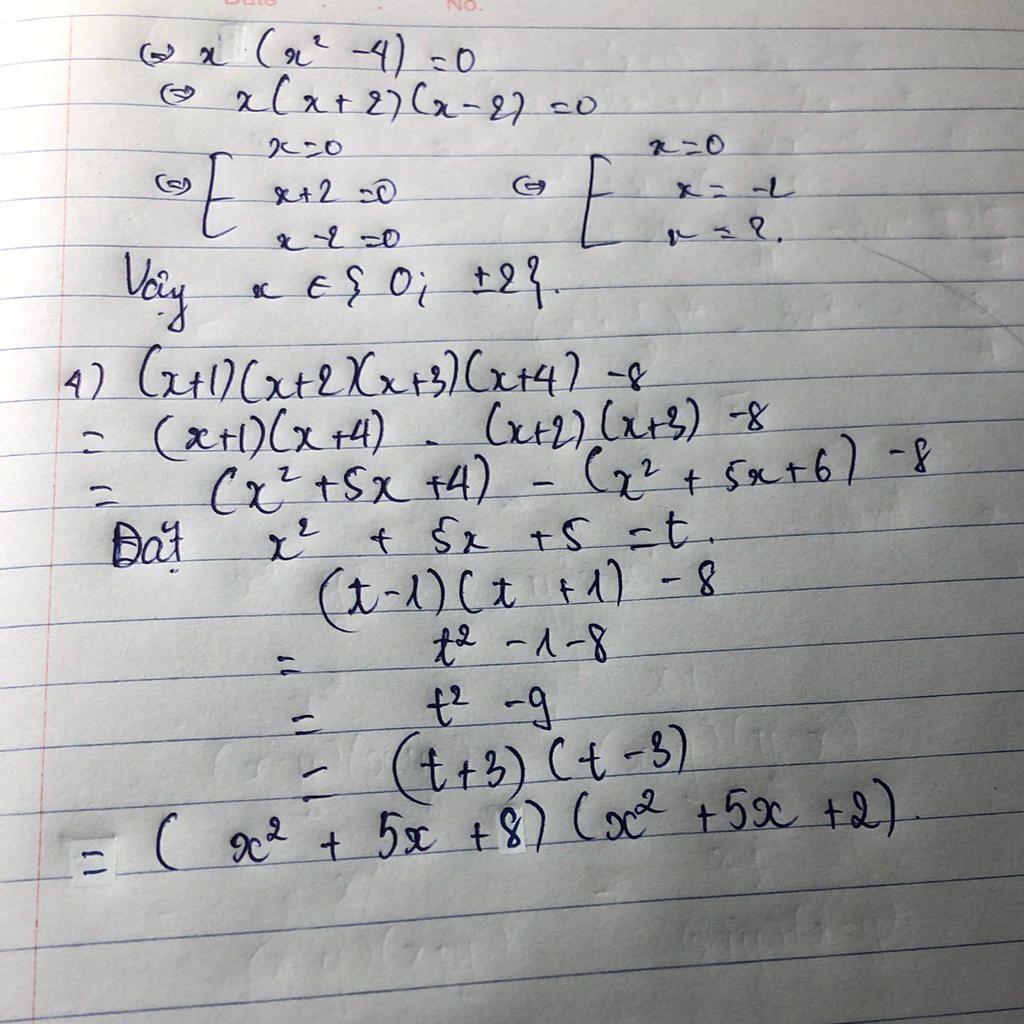 Date No.
⇔ x (x² - 4) = 0
⇔ x(x+2)(x-2) = 0
⇔ [ x=0 ⇔ [ x=0
x+2 =0 x = -2
x-2 =0 x = 2.
Vậy x ∈ { 0; ±2}.
4) (x+1)(x+2)(x+3)(x+4) -8
= (x+1)(x+4) - (x+2)(x+3) -8
= (x² +5x +4) - (x² + 5x+6) -8
Đặt x² + 5x +5 =t.
(t-1)(t +1) -8
= t² -1-8
= t² -9
= (t+3)(t-3)
= ( x² + 5x +8) (x² +5x +2).